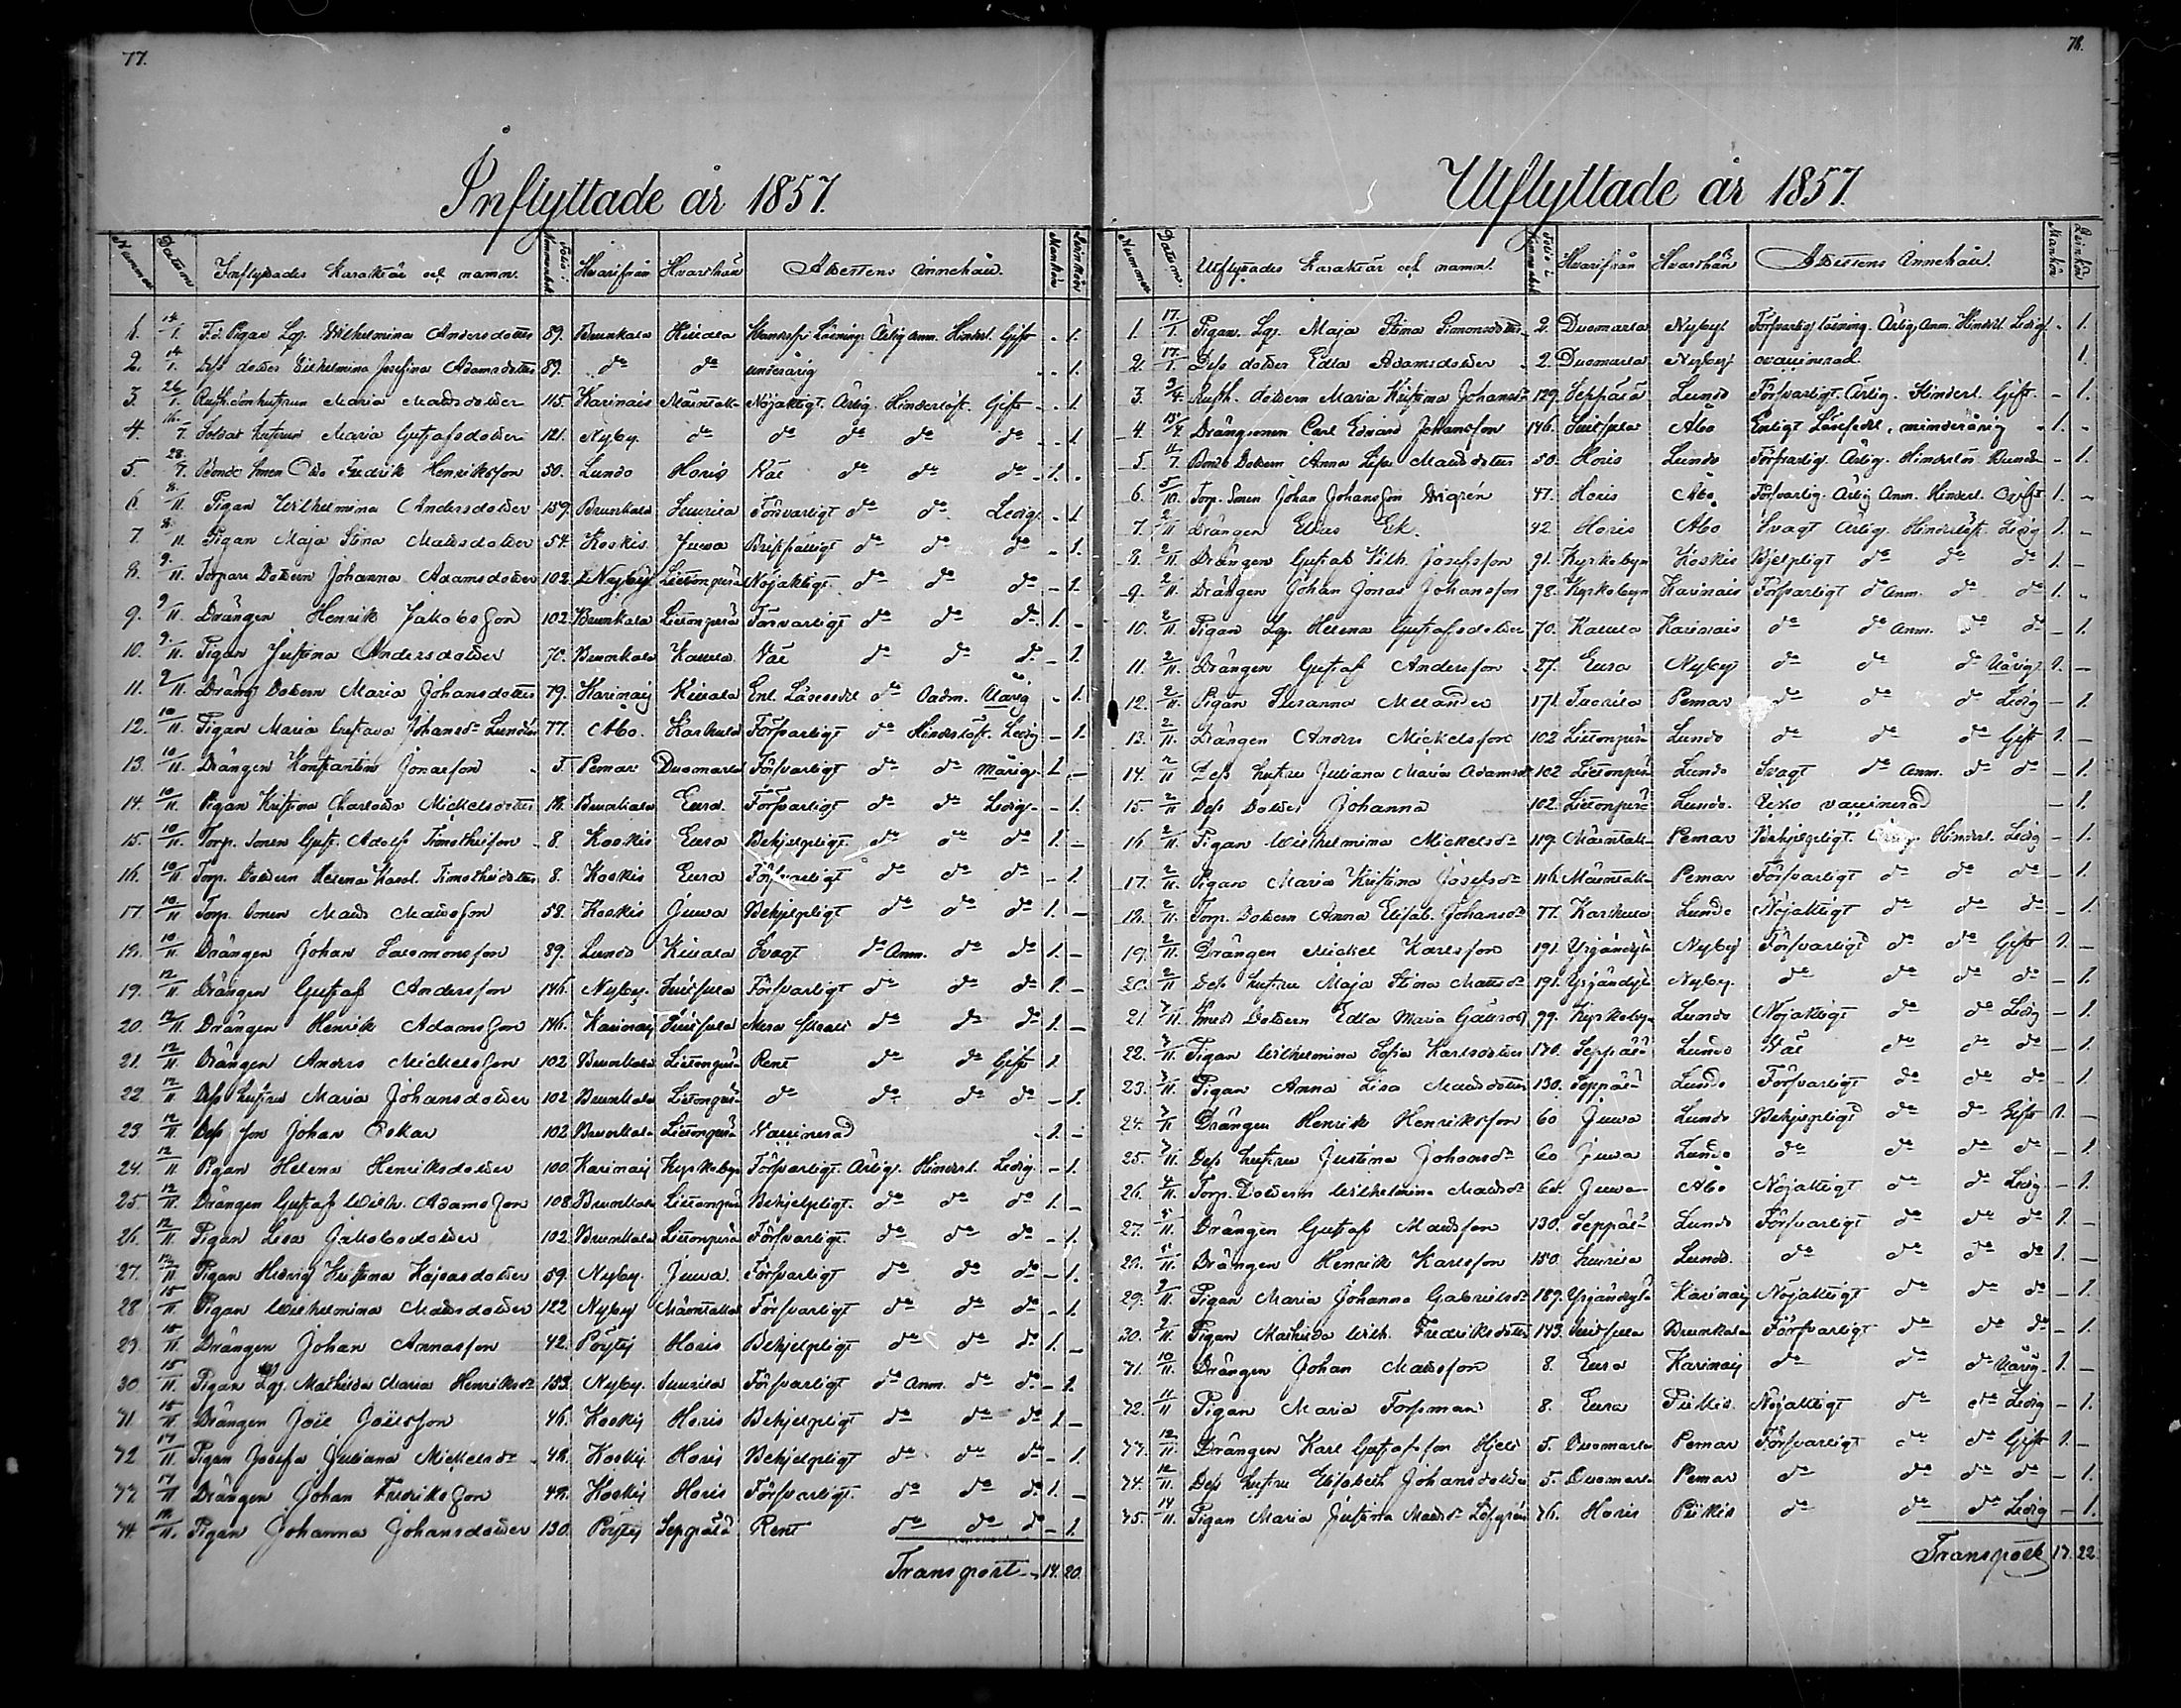 77.
Inflyttade år 1857.
Nummer Datum Inflyttades Karaktär och namn. Folio i Kommunikb. Hvarifrån Hvarthän Attestens innehåll. Mankön Qvinkön
1. 14/1. F.d. Pigan Lösp. Wilhelmina Andersdotter 89. Brunkala Läsning Ärlig Anm. Hinderl. Gift - 1.
2. 14/1. Dess dotter Wilhelmina Josefina Adamsdotter 89. do do - 1.
3. 26/1. hustrun Maria Mattsdotter 115. Karinais Nöjaktigt. Ärlig. Hinderlöst. Gift - 1.
4. 16/7. Soldat hustrun Maria Gustafsdotter 121. Nyby. do do do do do - 1
5. 28/7. Bonde Sonen Otto Fredrik Henriksson 50. Lundo Horis Väl do do do 1. -
6. 8/11. Pigan Wilhelmina Andersdotter 159. Brunkala Försvarligt do do Ledig - 1
7. 8/11. Pigan Maja Stina Mattsdotter 54. Koskis Juwa Bristfälligt do do do - 1.
8. 9/11. Torpare Dottern Johanna Adamsdotter 102. Nyby Liettonperä Nöjaktigt do do do - 1.
9. 9/11. Drängen Henrik Jakobsson 102. Brunkala Liettonperä Försvarligt do do do 1. -
10. 9/11. Pigan Justina Andersdotter 70. Brunkala Kaula Väl do do do - 1.
11. 9/11. Dräng Dottern Maria Johansdotter 79. Karinais Enl. do Oadm. - 1.
12. 10/11. Pigan Maria Gustava Johansdr 77. Åbo. Karhula Försvarligt do Hinderlöst. Ledig - 1.
13. 10/11. Drängen Konstantin Jonasson 5. Pemar Duomarla Försvarligt do do 1. -
14. 10/11. Pigan Kristina Charlotta Mickelsdotter Brunkala Eura Försvarligt do do Ledig - 1.
15. 10/11. Torp. Sonen Gust. Adolf Timotheisson 8. Koskis Eura Behjelpligt do do do 1. -
16. 10/11 Torp. Dottern Helena Karol. Timotheidotter 8. Koskis Eura Försvarligt do do do - 1.
17. 10/11 Torp. Sonen Matts Mattsson 58. Koskis Juwa Behjelpligt do do do 1. -
18. 10/11 Drängen Johan Salomonsson 89. Lundo Svagt do Anm. do do 1. -
19. 12/11. Drängen Gustaf Andersson 146. Nyby. Försvarligt do do do 1. -
20. 12/11. Drängen Henrik Adamsson 146. Karinais do do do 1. -
21. 12/11 Drängen Anders Mickelsson 102 Brunkala Liettonperä Rent do do Gift 1.
22 12/11 Dess hustru Maria Johansdotter 102 Brunkala Liettonperä do do do do - 1.
23. 12/11. Dess son Johan Oskar 102 Brunkala Liettonperä Vaccinerad 1. -
24. 12/11 Pigan Helena Henriksdotter 100 Karinais Kyrkobyn Försvarligt. Ärlig. Hinderl. Ledig. - 1.
25. 12/11. Drängen Gustaf Wilh. Adamsson 108 Brunkala Liettonperä Behjelpligt. do do do 1. -
26. 12/11 Pigan Lisa Jakobsdotter 102 Brunkala Liettonperä Försvarligt. do do do - 1.
27. 12/11 Pigan Hedvig Kristina Kajsasdotter 59. Nyby. Juwa. Försvarligt do do do - 1.
28. 15/11. Pigan Wilhelmina Mattsdotter 122 Nyby Försvarligt do do do - 1.
29. 15/11. Drängen Johan Annasson 42. Pöytis Horis Behjelpligt do do do 1. -
30. 15/11. Pigan Lösp. Mathilda Maria Henriksdr Nyby. Försvarligt do Anm. do do - 1.
31 15/11. Drängen Joel Joelsson 46. Koskis Horis Behjelpligt do do do 1. -
32 17/11. Pigan Josefa Juliana Mickelsdr 48. Koskis Horis Behjelpligt do do do - 1.
33 17/11 Drängen Johan Fredriksson 48. Koskis Horis Försvarligt. do do do 1. -
34 18/11. Pigan Johanna Johansdotter 130. Pöytis Seppälä Rent do do do - 1.
Transport 14. 20.
78.
Utflyttade år 1857.
Nummer Datum. Utflyttades Karaktär och namn. Folio i Kommunikb. Hvarifrån Hvarthän Attestens innehåll. Mankön Qvinkön
1. 17/1. Pigan. Lösp. Maja Stina Simonsdotter 2. Duomarla Nyby Försvarlig läsning. Ärlig. Anm. Hinderl. Ledig. - 1.
2. 17/1. Dess dotter Edla Adamsdotter 2. Duomarla Nyby ovaccinerad. 1.
3. 9/4. dottern Maria Kristina Johansdr 129. Seppälä Lundo Försvarligt. Ärlig. Hinderl. Gift. - 1.
4. Drängsonen Carl Edvard Johansson 146. Åbo Enligt minderårig 1. -
5. Bonde Dottern Anna Lisa Mattsdotter 50. Horis Lundo Försvarlig. Ärlig. Hinderlös - 1.
6. 5/10. Torp. Sonen Johan Johansson 47. Horis Åbo Försvarlig. Ärlig Anm. Hinderl. 1. -
7. 2/11 Drängen Elias Ek. 42 Horis Åbo Svagt Ärlig. Hinderlöst. Ledig 1. -
8. 2/11. Drängen Gustaf Wilh. Josefsson 91. Kyrkobyn Koskis Hjelpligt do do do 1. -
9. 2/11. Drängen Johan Jonas Johansson 98. Kyrkobyn Karinais Försvarligt do Anm. do do 1. -
10. 2/11. Pigan Lösp. Helena Gustafsdotter 70. Kaula Karinais do do Anm. do do - 1.
11. 2/11. Drängen Gustaf Andersson 27. Eura Nyby do do do 1. -
12. 2/11. Pigan Susanna Melander 171. Tuorila Pemar do do do Ledig - 1.
13. 2/11. Drängen Anders Mickelsson 102 Liettonperä Lundo do do do Gift 1. -
14. 2/11 Dess hustru Juliana Maria Adamsdr 102 Liettonperä Lundo Svagt do Anm. do do - 1.
15. 2/11 Dess Dotter Johanna 102. Liettonperä Lundo. vaccinerad - 1.
16. 2/11 Pigan Wilhelmina Mickelsdr 119. Pemar Behjelpligt. Ärlig. Hinderl. Ledig - 1.
17. 2/11. Pigan Maria Kristina Josefsdr 116. Pemar Försvarligt do do do - 1.
18. 2/11. Torp. Dottern Anna Elisab. Johansdr 77. Karhula Lundo Nöjaktigt do do do - 1.
19. 2/11. Drängen Mickel Karlsson 191. Nyby Försvarligt do do Gift 1. -
20. 2/11 Dess hustru Maja Stina Mattsdr 191. Nyby. do do do do - 1.
21. Smeds Dottern Edla Maria 99. Kyrkobyn Lundo Nöjaktigt do do Ledig - 1.
22. Pigan Wilhelmina Sofia Karlsdotter 130. Seppälä Lundo Väl do do do - 1.
23. Pigan Anna Lisa Mattsdotter 130. Seppälä Lundo Försvarligt do do do - 1.
24. Drängen Henrik Henriksson 60 Juwa Lundo Behjelpligt do do Gift 1. -
25. Dess hustru Justina Johansdr 60 Juwa Lundo do do do do - 1.
26. Torp. Dottern Wilhelmina Mattsdr Juwa Åbo Nöjaktigt do do Ledig - 1.
27. Drängen Gustaf Mattsson 130. Seppälä Lundo Försvarligt do do do 1. -
28. Drängen Henrik Karlsson 150 Lundo. do do do do 1. -
29. Pigan Maria Johanna Gabrielsdr 189. Karinais Nöjaktigt do do do - 1.
30. Pigan Mathilda Wilh. Fredriksdotter 143. Brunkala Försvarligt do do do - 1.
31. 10/11. Drängen Johan Mattsson 8. Eura Karinais do do do 1. -
32. 11/11 Pigan Maria Forsman 8. Eura Piikkis Nöjaktigt do do Ledig - 1.
33. 12/11. Drängen Karl Gustafsson Hjelt 5. Duomarla Pemar Försvarligt do do Gift 1. -
34. 12/11. Dess hustru Elisabeth Johansdotter 5. Duomarla Pemar do do do do - 1.
35. 14/11. Pigan Maria Justina Mattsdr Löfgrén 46. Horis Piikkis do do do Ledig - 1.
Transport 13. 22.